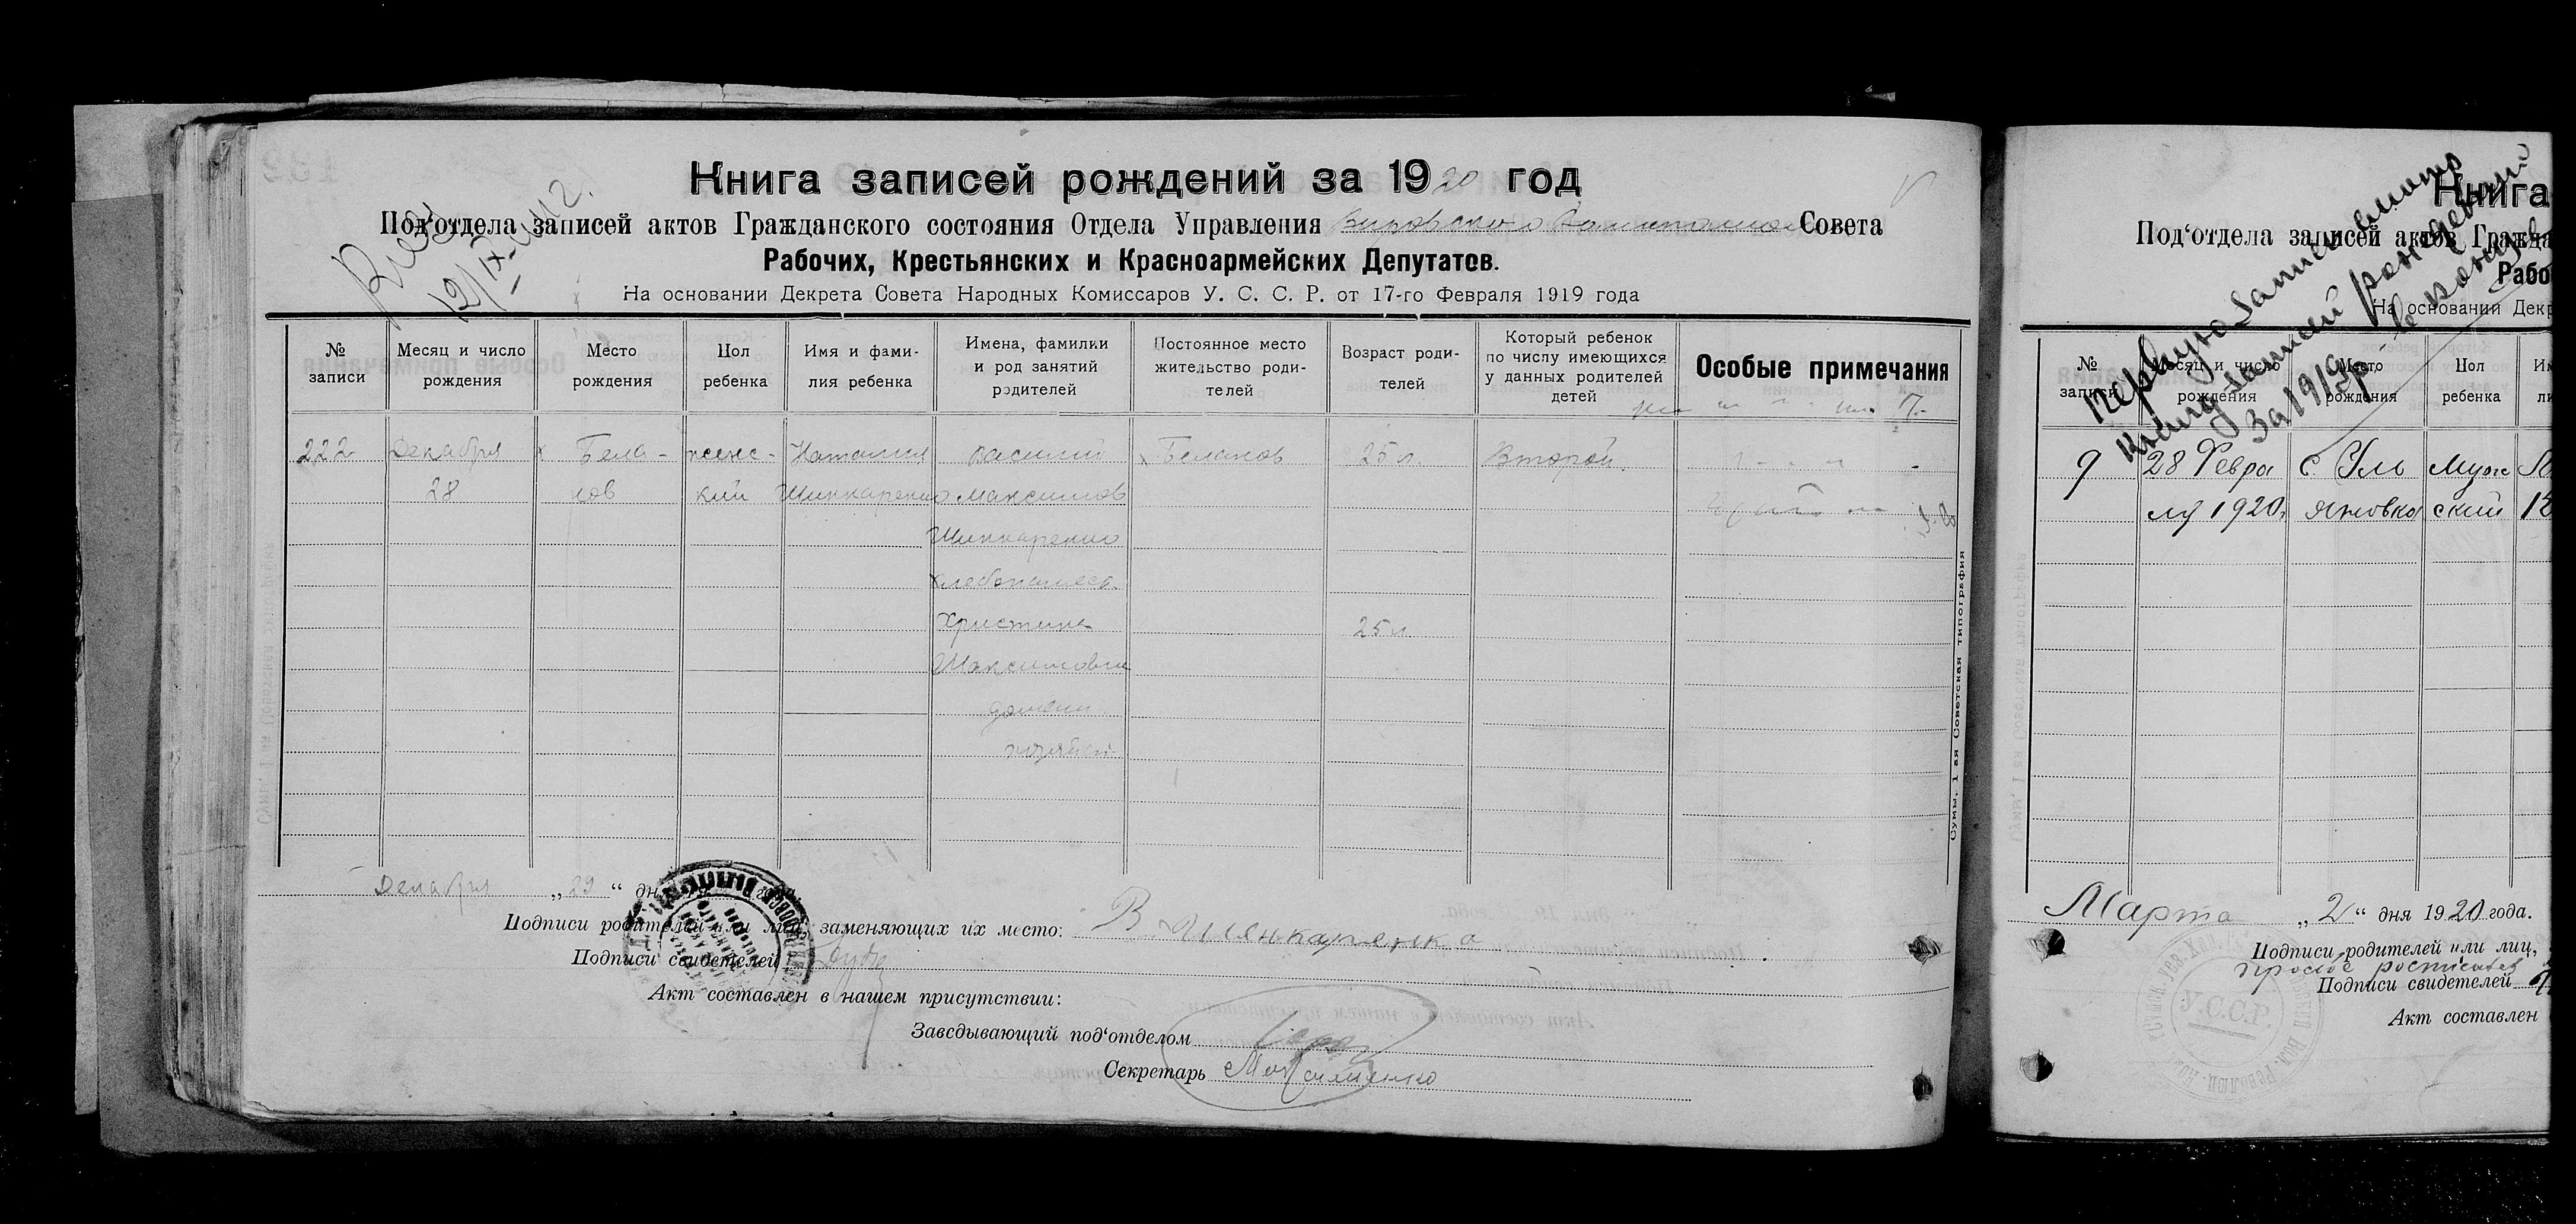 Книга записей рождений за 1920 год
Под‘отдела записей актов Гражданского состояния Отдела Управления Совета
Рабочих, Крестьянских и Красноармейских Депутатов.
На основании Декрета Совета Народных Комиссаров У. С. С. Р. от 17-го Февраля 1919 года
№ записи
Месяц и число рождения
Место рождения
Пол ребенка
Имя и фами-
лия ребенка
Имена, фамилии
и род занятий
родителей
Постоянное место
жительство роди-
телей
Возраст роди-
телей
Который ребенок
по числу имеющихся
у данных родителей
детей
Особые примечания
222 Декабря х Бела- женс- Наталия Василий х Беланов 25 л. Второй.
28 нов кий Шинкаренко Максимов
Шинкаренко
хлебопашест.
Христина 25 л.
Максимовна
домашн.
хозяйст.
Сумы, 1-ая Советская типография
Декабря „29“ дн
Подписи родителей или лиц, заменяющих их место: В. Шенкаренко
Подписи свидетелей
Акт составлен в нашем присутствии:
Заведывающий под‘отделом
Секретарь Максименко
Книга
Под‘отдела записей актов Гражда
Рабо
На основании Декр
Первую запись смотр
книгу записей рождений
за 1919 в конце
№ записи
Месяц и число рождения
Место рождения
Пол ребенка
Им
ли
9 28 Февра с. Уль Муж
ля 1920г. яновка ский
Марта „2“ дня 1920 года.
Подписи родителей или лиц,
Подписи свидетелей
Акт составлен
У.С.С.Р.